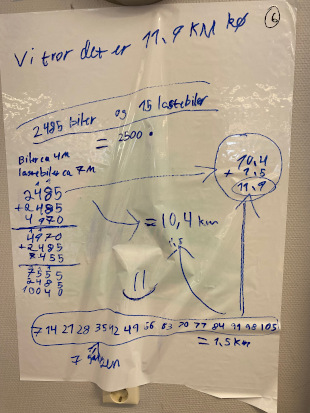 6
Vi tror det er 11,9 KM kø
2485 biler og 15 lastebiler
= 2500
Biler ca 4 M
lastebiler ca 7 M
2485
+ 2485
4970
4970
+ 2485
7455
7555
2485
10040
= 10,4 km
10,4
+ 1,5
11,9
1,5
7 14 21 28 35 42 49 56 63 70 77 84 91 98 105
= 1,5 km
7